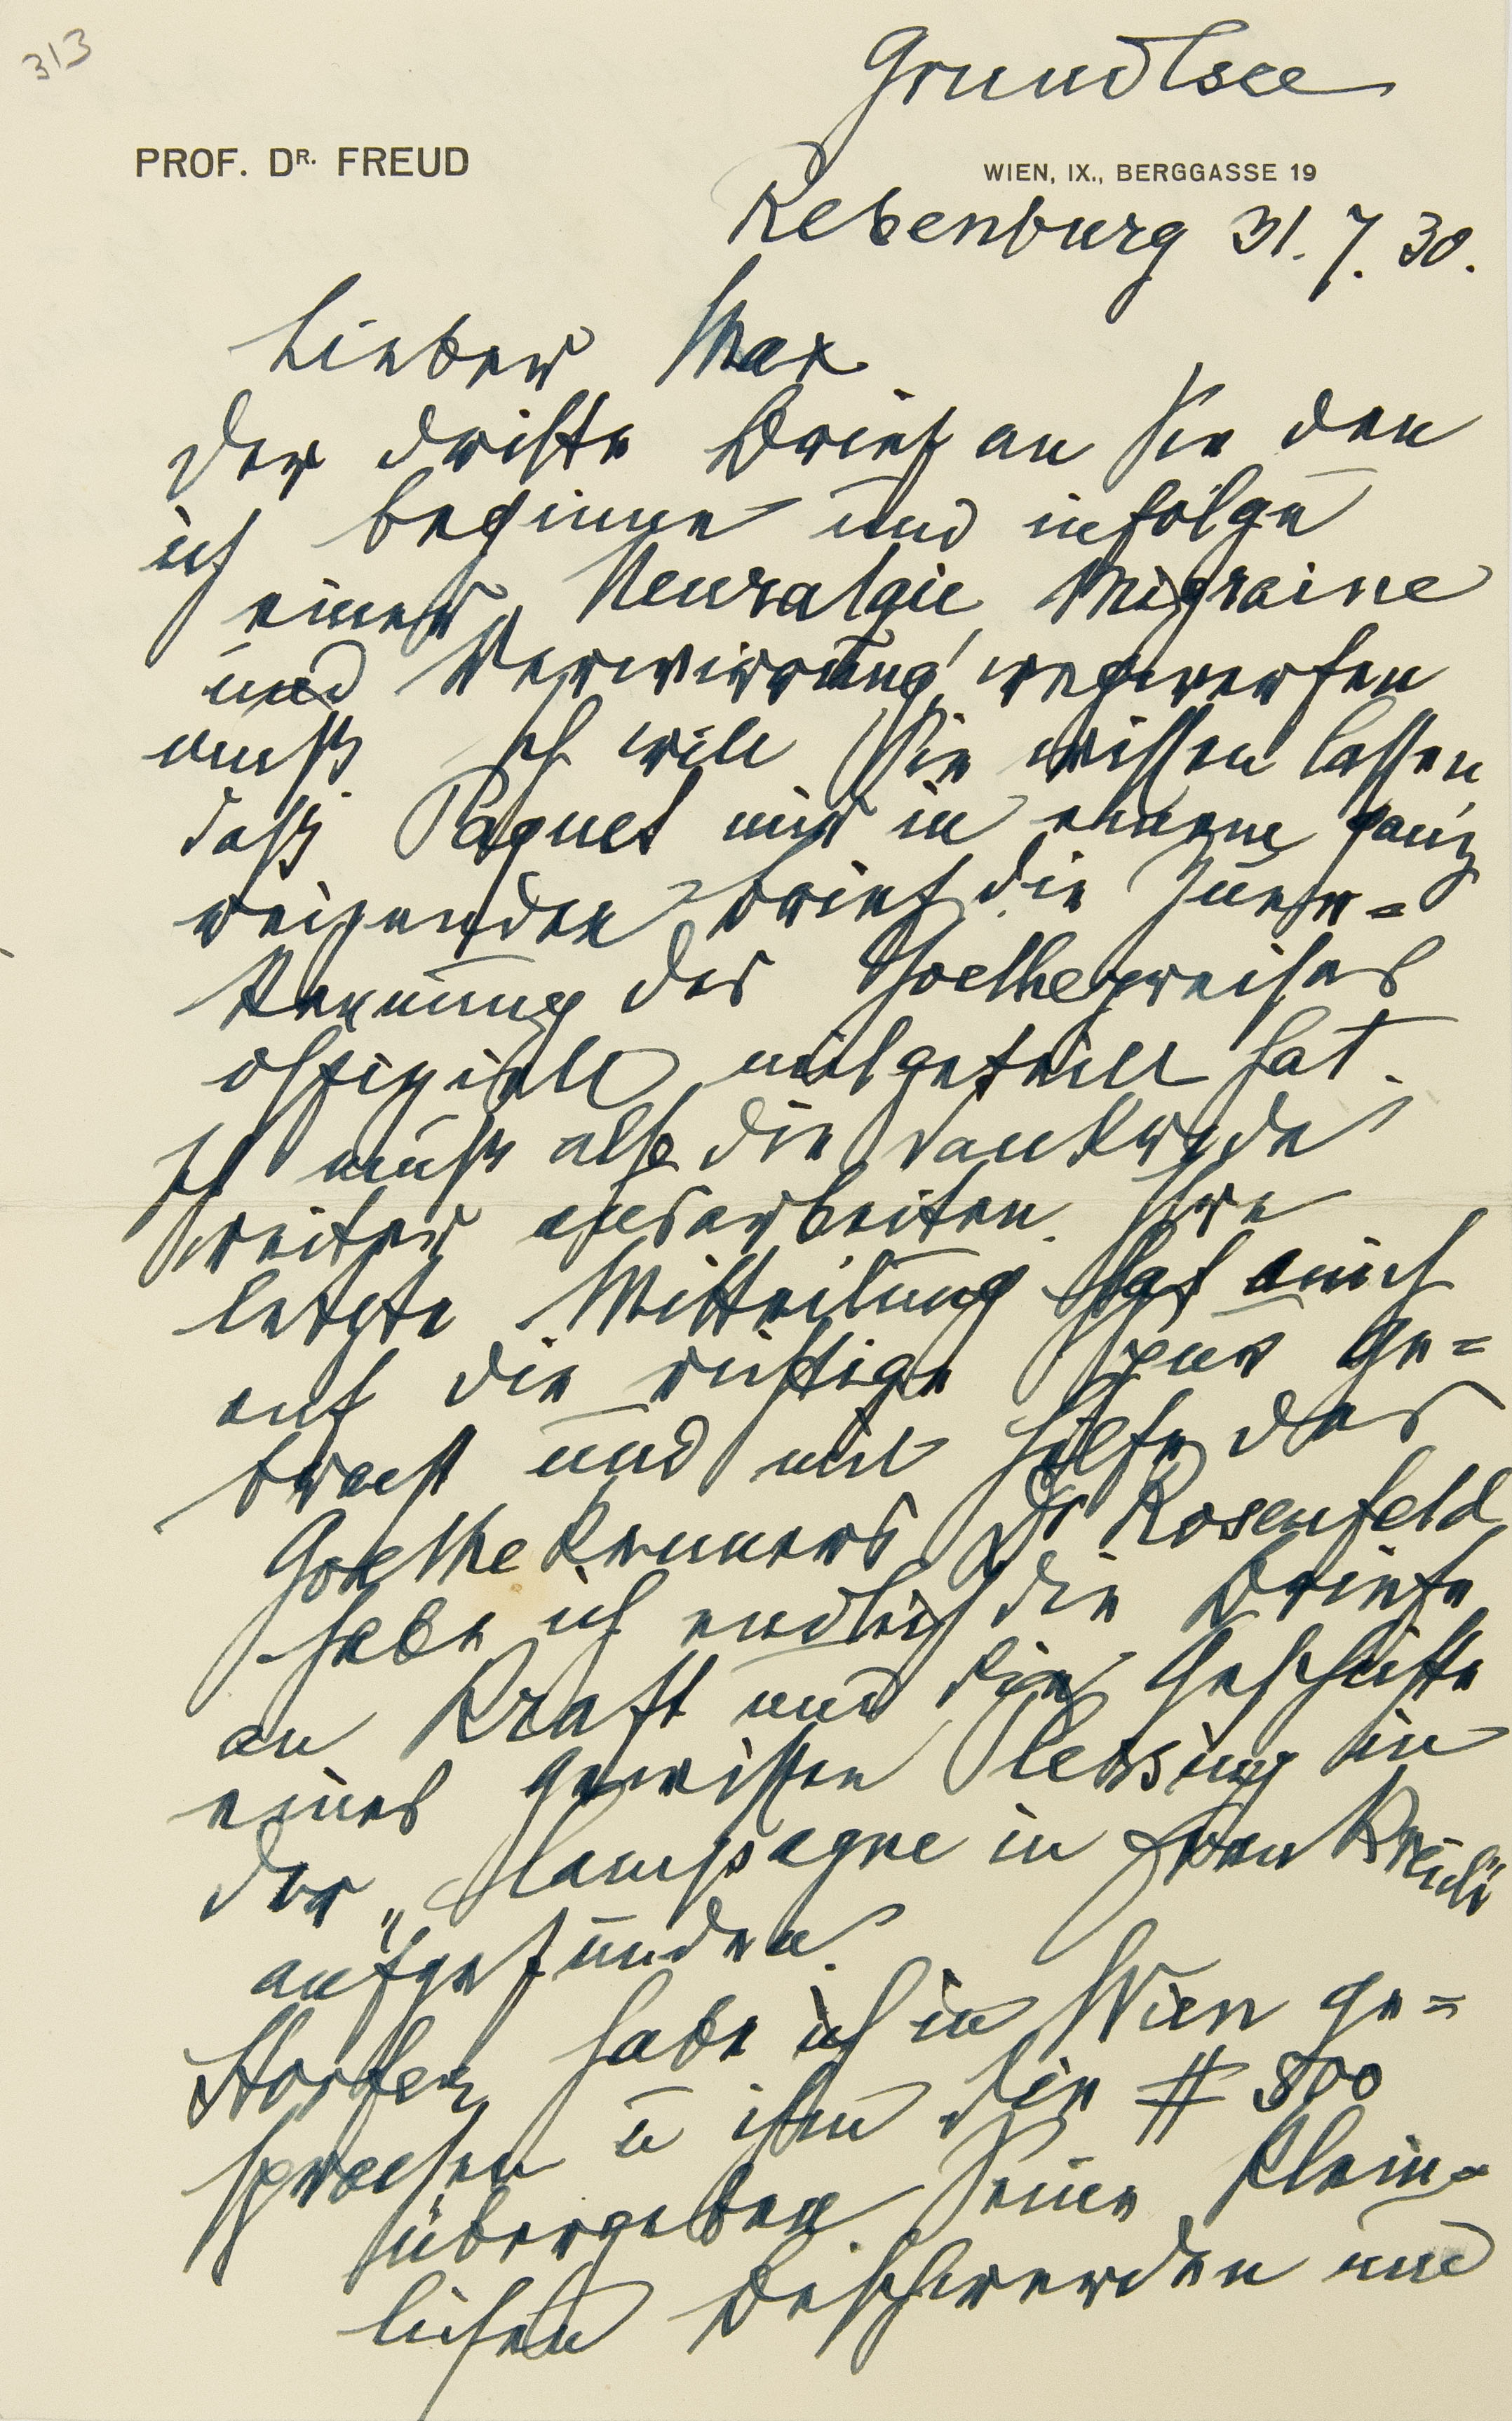 313
Grundlsee
PROF. DR. FREUD
WIEN, IX., BERGGASSE 19
Rebenburg 31.7.30.
Lieber Max
Der dritte Brief an Sie den
ich beginne und infolge
einer Neuralgie, Migraine
und Verwirrung wegwerfen
muß. Ich will Sie wissen lassen
daß Paquet mir in einem ganz
reizenden Brief die Zuer=
kennung des Goethepreises
offiziell mitgeteilt hat.
Ich muß also die Dankrede
weiter ausarbeiten. Ihre
letzte Mitteilung hat mich
auf die richtige Spur ge=
bracht und mit Hilfe des
Goethekenners Dr Rosenfeld
habe ich endlich die Briefe
an Kraft und die Geschichte
eines gewissen Plessing in
der „Campagne in Frankreich“
aufgefunden.
Storfer habe ich in Wien ge=
sprochen u ihm die # 500
übergeben. Seine klein=
lichen Beschwerden und